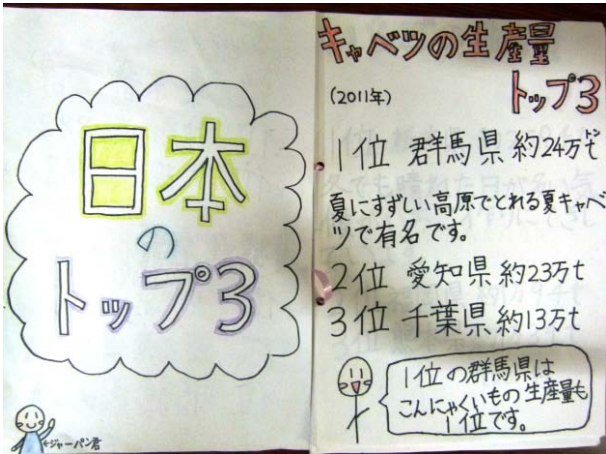 日本
の
トップ3
←ジャーパン君
キャベツの生産量
トップ3
(2011年)
1位 群馬県約24万t
夏にすずしい高原でとれる夏キャベ
ツで有名です。
2位 愛知県約23万t
3位 千葉県約13万t
1位の群馬県は
こんにゃくいもの生産量も
1位です。